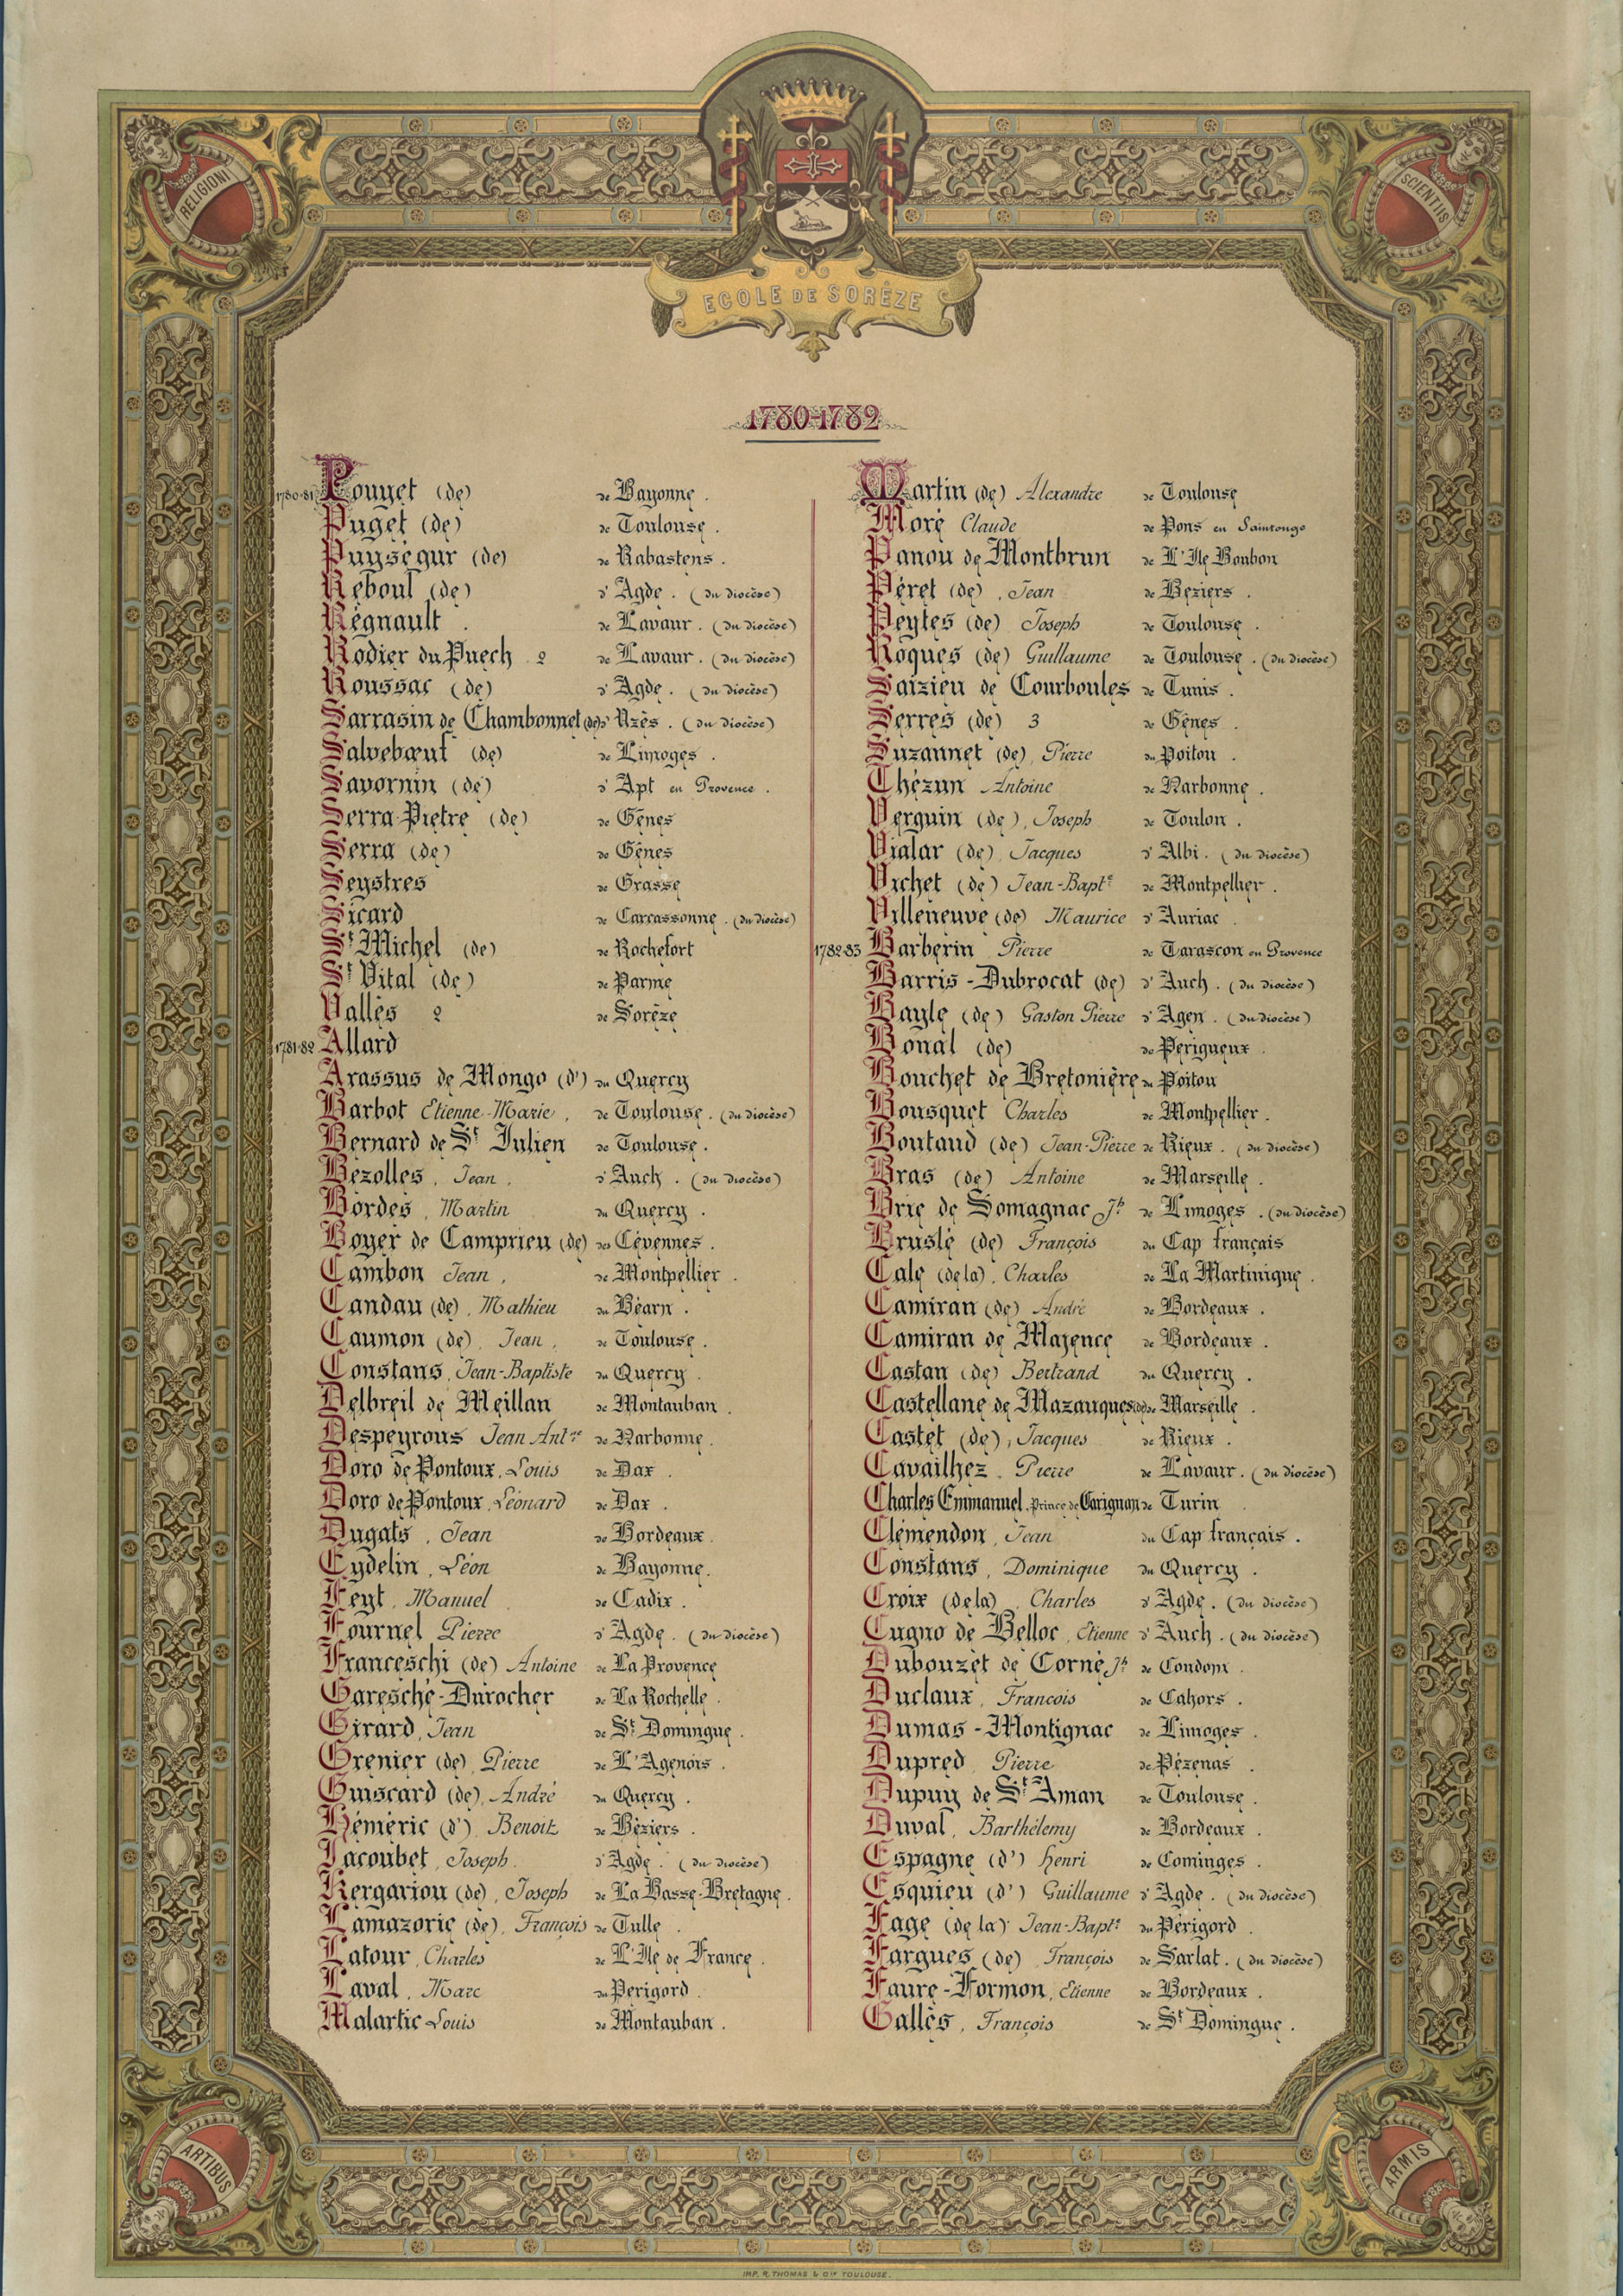 RELIGIONI
SCIENTIIS
ECOLE DE SORÈZE
1780-1782
1780-81 Pouget (de) de Bayonne.
Puget (de) de Toulouse.
Puységur (de) de Rabastens.
Reboul (de) d'Agde. (du diocèse)
Régnault. de Lavaur. (du diocèse)
Rodier du Puech 2 de Lavaur. (du diocèse)
Roussac (de) d'Agde. (du diocèse)
Sarrasin de Chambonnet (de) d'Uzès. (du diocèse)
Salvebœuf (de) de Limoges.
Savornin (de) d'Apt en Provence.
Serra-Pietre (de) de Gênes
Serra (de) de Gênes
Seystres de Grasse
Sicard de Carcassonne. (du diocèse)
St Michel (de) de Rochefort
St Vital (de) de Parme
Vallès 2 de Sorèze
1781-82 Allard
Arassus de Mongo (d') du Quercy
Barbot Etienne-Marie, de Toulouse. (du diocèse)
Bernard de St Julien de Toulouse.
Bézolles, Jean, d'Auch. (du diocèse)
Bordes, Martin du Quercy.
Boyer de Camprieu (de) des Cévennes.
Cambon Jean, de Montpellier.
Candau (de), Mathieu du Béarn.
Caumon (de), Jean, de Toulouse.
Constans, Jean-Baptiste du Quercy.
Delbreil de Meillan de Montauban.
Despeyrous Jean Antne de Narbonne.
Doro de Pontoux, Louis de Dax.
Doro de Pontoux, Léonard de Dax.
Dugats, Jean de Bordeaux.
Eydelin, Léon de Bayonne.
Feyt, Manuel de Cadix.
Fournel Pierre d'Agde. (du diocèse)
Franceschi (de) Antoine de La Provence
Garesché-Durocher de La Rochelle.
Girard, Jean de St Domingue.
Grenier (de), Pierre de L'Agenois.
Guiscard (de), André du Quercy.
Héméric (d'), Benoit de Béziers.
Jacoubet, Joseph. d'Agde. (du diocèse)
Kergariou (de), Joseph de La Basse-Bretagne.
Lamazorie (de), François de Tulle.
Latour, Charles de L'Ile de France.
Laval, Marc du Périgord.
Malartic Louis de Montauban.
Martin (de) Alexandre de Toulouse
Moré Claude de Pons en Saintonge
Panou de Montbrun de L'Ile Bonbon
Péret (de), Jean de Béziers.
Peytes (de) Joseph de Toulouse.
Roques (de) Guillaume de Toulouse. (du diocèse)
Saizieu de Courboules de Tunis.
Serres (de) 3 de Gênes.
Suzannet (de), Pierre du Poitou.
Thézun Antoine de Narbonne.
Verguin (de), Joseph de Toulon.
Vialar (de), Jacques d'Albi. (du diocèse)
Vichet (de) Jean-Bapte de Montpellier.
Villeneuve (de) Maurice d'Auriac.
1782-83 Barberin Pierre de Tarascon en Provence
Barris-Dubrocat (de) d'Auch. (du diocèse)
Bayle (de) Gaston Pierre d'Agen. (du diocèse)
Bonal (de) de Périgueux.
Bouchet de Bretonière du Poitou
Bousquet Charles de Montpellier.
Boutaud (de) Jean-Pierre de Rieux. (du diocèse)
Bras (de) Antoine de Marseille.
Brie de Somagnac Jh de Limoges. (du diocèse)
Bruslé (de) François du Cap français
Cale (de la), Charles de La Martinique.
Camiran (de) André de Bordeaux.
Camiran de Majence de Bordeaux.
Castan (de) Bertrand du Quercy.
Castellane de Mazauques (de) de Marseille.
Castet (de), Jacques de Rieux.
Cavailhez. Pierre de Lavaur. (du diocèse)
Charles Emmanuel, Prince de Carignan de Turin
Clémendon, Jean du Cap français.
Constans, Dominique du Quercy.
Croix (de la), Charles d'Agde. (du diocèse)
Cugno de Belloc, Etienne d'Auch. (du diocèse)
Dubouzet de Corné Jh de Condom.
Duclaux, Francois de Cahors.
Dumas-Montignac de Limoges.
Dupred, Pierre de Pézenas.
Dupuy de St Aman de Toulouse.
Duval, Barthélemy de Bordeaux.
Espagne (d') Henri de Cominges.
Esquieu (d') Guillaume d'Agde. (du diocèse)
Fage (de la) Jean-Bapte du Périgord.
Fargues (de) François de Sarlat. (du diocèse)
Faure-Formon, Etienne de Bordeaux.
Gallès, François de St Domingue.
ARTIBUS
ARMIS
IMP. R. THOMAS & Cie TOULOUSE.